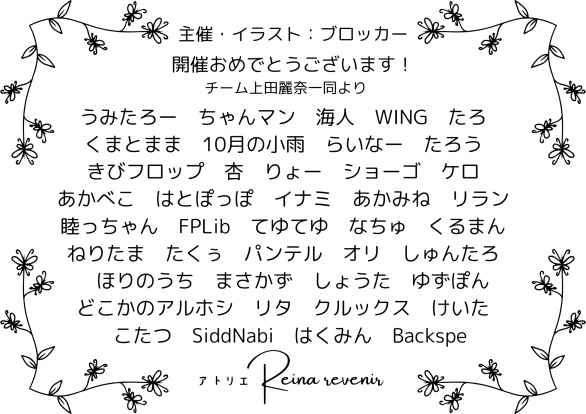 主催・イラスト：ブロッカー
開催おめでとうございます！
チーム上田麗奈一同より
うみたろー　ちゃんマン　海人　WING　たろ
くまとまま　10月の小雨　らいなー　たろう
きびフロップ　杏　りょー　ショーゴ　ケロ
あかべこ　はとぽっぽ　イナミ　あかみね　リラン
睦っちゃん　FPLib　てゆてゆ　なちゅ　くるまん
ねりたま　たくぅ　パンテル　オリ　しゅんたろ
ほりのうち　まさかず　しょうた　ゆずぽん
どこかのアルホシ　リタ　クルックス　けいた
こたつ　SiddNabi　はくみん　Backspe
アトリエ Reina revenir